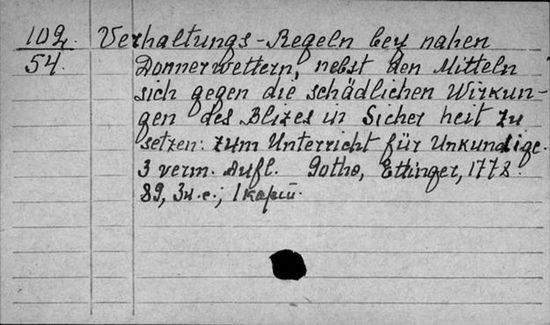 102 Verhaltungs-Regeln bey nahen
54. Donnerwettern, nebst den Mitteln
sich gegen die schädlichen Wirkun-
gen des Blizes in Sicherheit zu
setzen: zum Unterricht für Unkundige.
3 verm. Aufl. Gotha, Ettinger, 1778.
89, 3 н.с.; 1